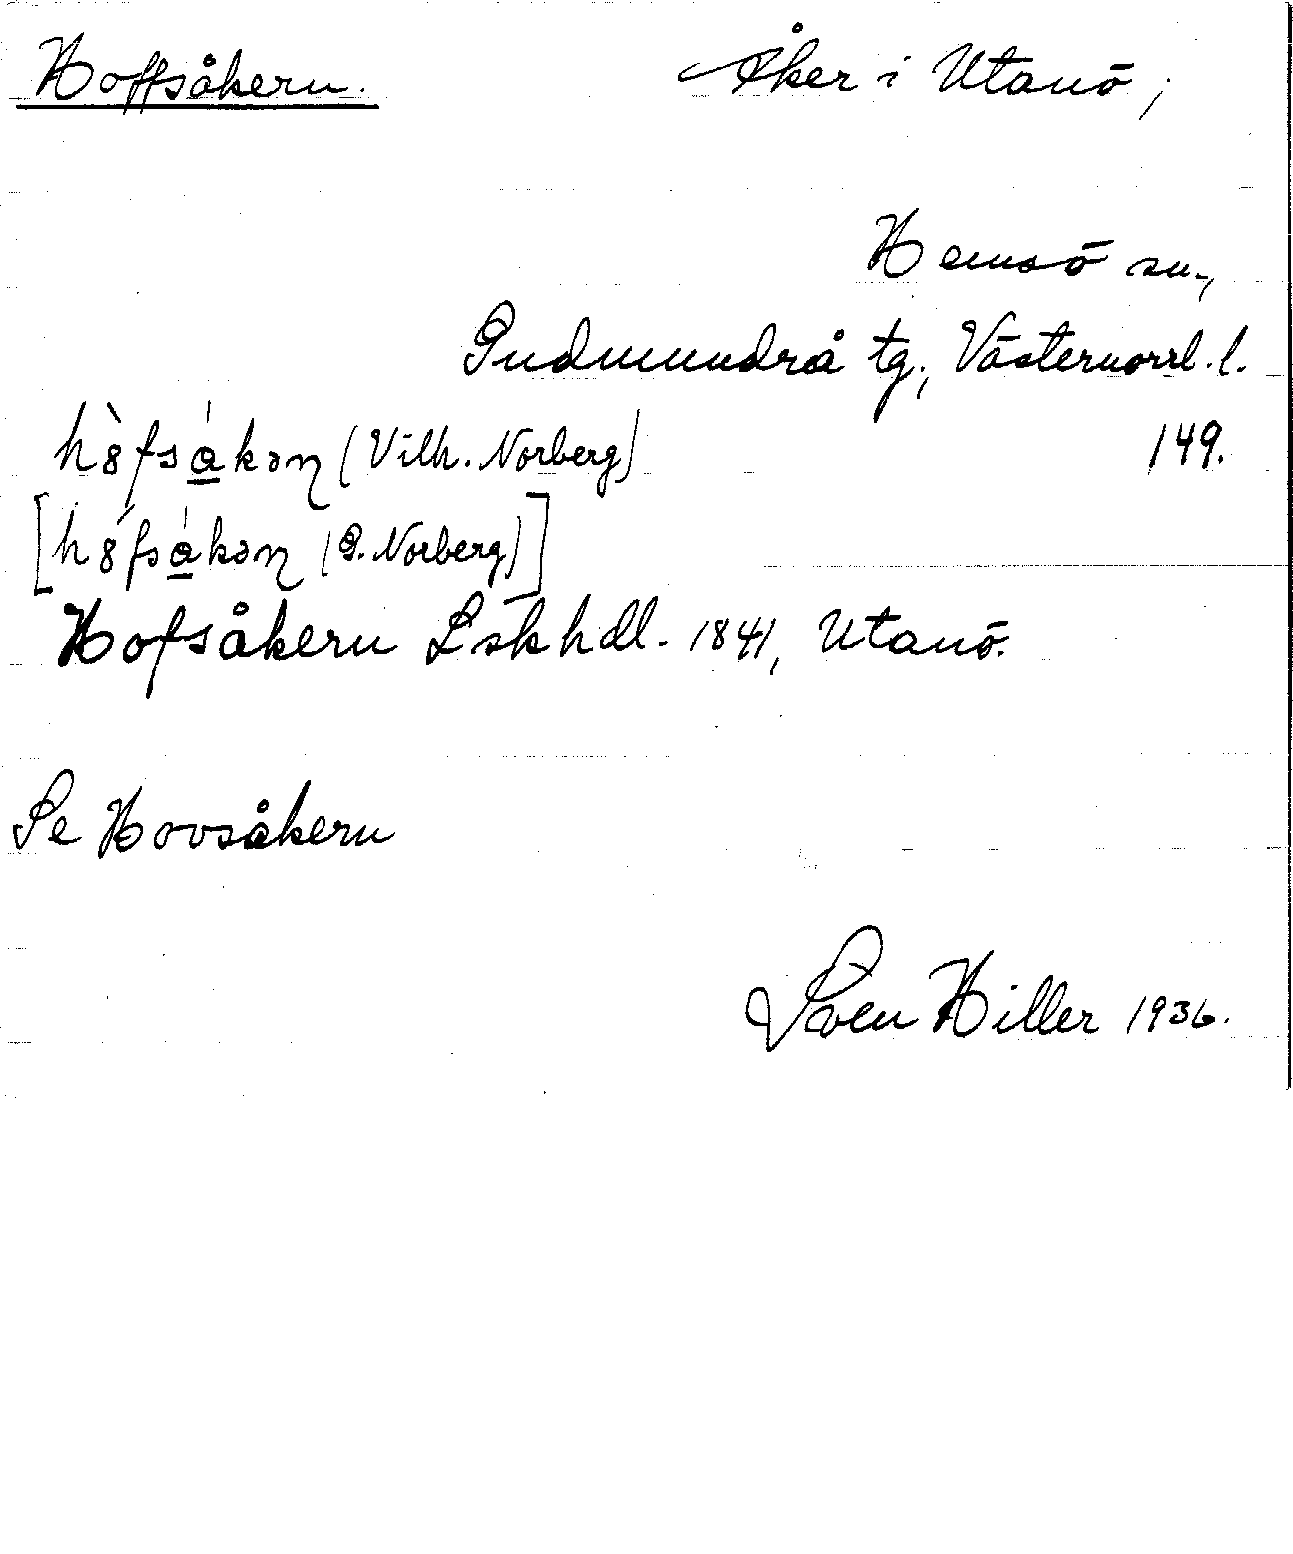 Hoffsåkern. Åker i Utanö;
Hemsö sn.,
Gudmundrå tg., Västernorrl. l.
149.
hò̀fsákən (Vilh. Norberg)
[hófsákən (G. Norberg)]
Hofsåkern Lskhdl. 1841, Utanö.
Se Hovsåkern
Sven Hiller 1936.